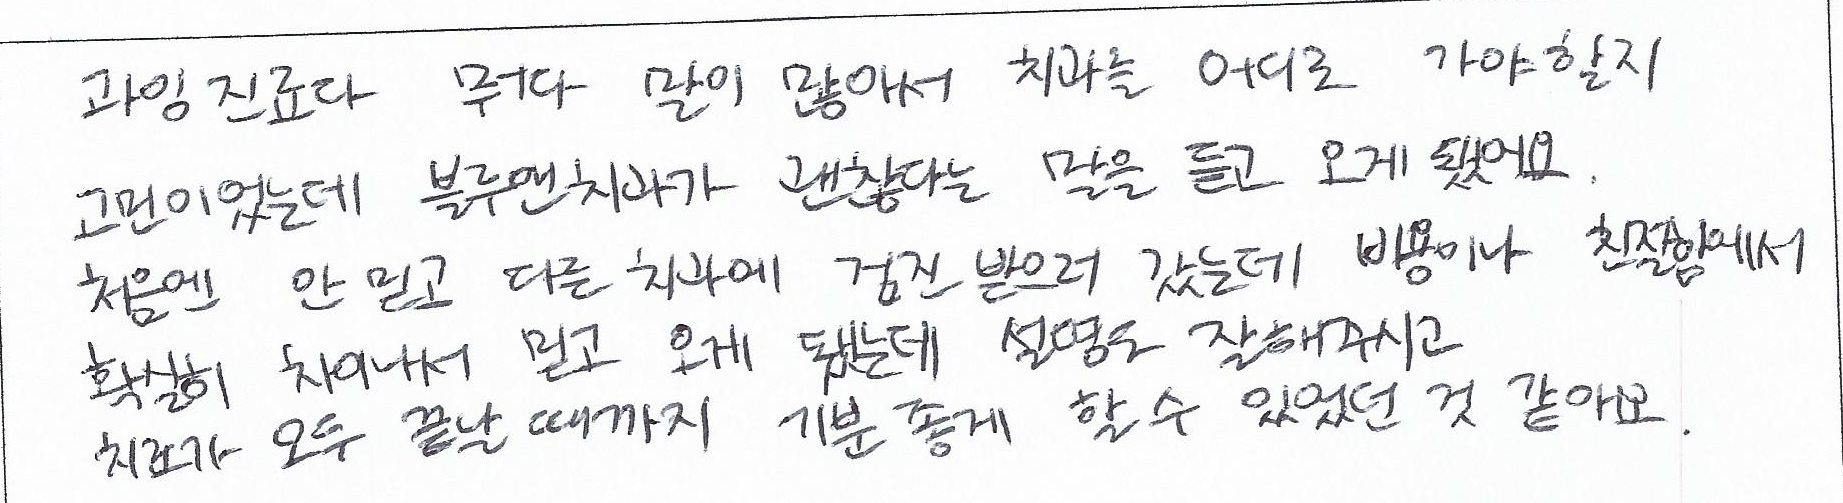 과잉진료다 뭐다 말이 많아서 치과를 어디로 가야할지
고민이었는데 블루앤치과가 괜찮다는 말을 듣고 오게 됐어요.
처음엔 안 믿고 다른 치과에 검진 받으러 갔는데 비용이나 친절함에서
확실히 차이나서 믿고 오게 됐는데 설명도 잘해주시고
치료가 모두 끝날 때까지 기분 좋게 할 수 있었던 것 같아요.